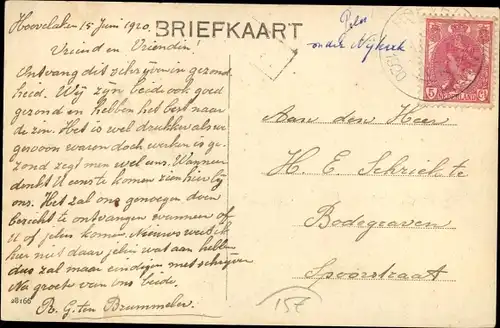 Hoevelaken 15 Juni 1920.
BRIEFKAART
Vriend en Vriendin!
Ontvang dit schrijven in gezond
heid. Wij zyn beide ook goed
gezond en hebben het best naar
de zon. Het is wel drukker als we
gewoon waren doch werken is ge-
zond zegt men wel eens. Wanneer
denkt U eens te komen zien hier bij
ons. Het zal ons genoegen doen
bericht te ontvangen wanneer of
U of jelui komen. Nieuws weet ik
hier niet daar jelui wat aan hebben
dus zal maar eindigen met schrijven
Na groete van ons beide.
R. G. ten Brummeler
28166
onder Nijkerk
1920
5 NEDERLAND CT
Aan den Heer
H. E. Schriek te
Bodegraven
Spoorstraat
157